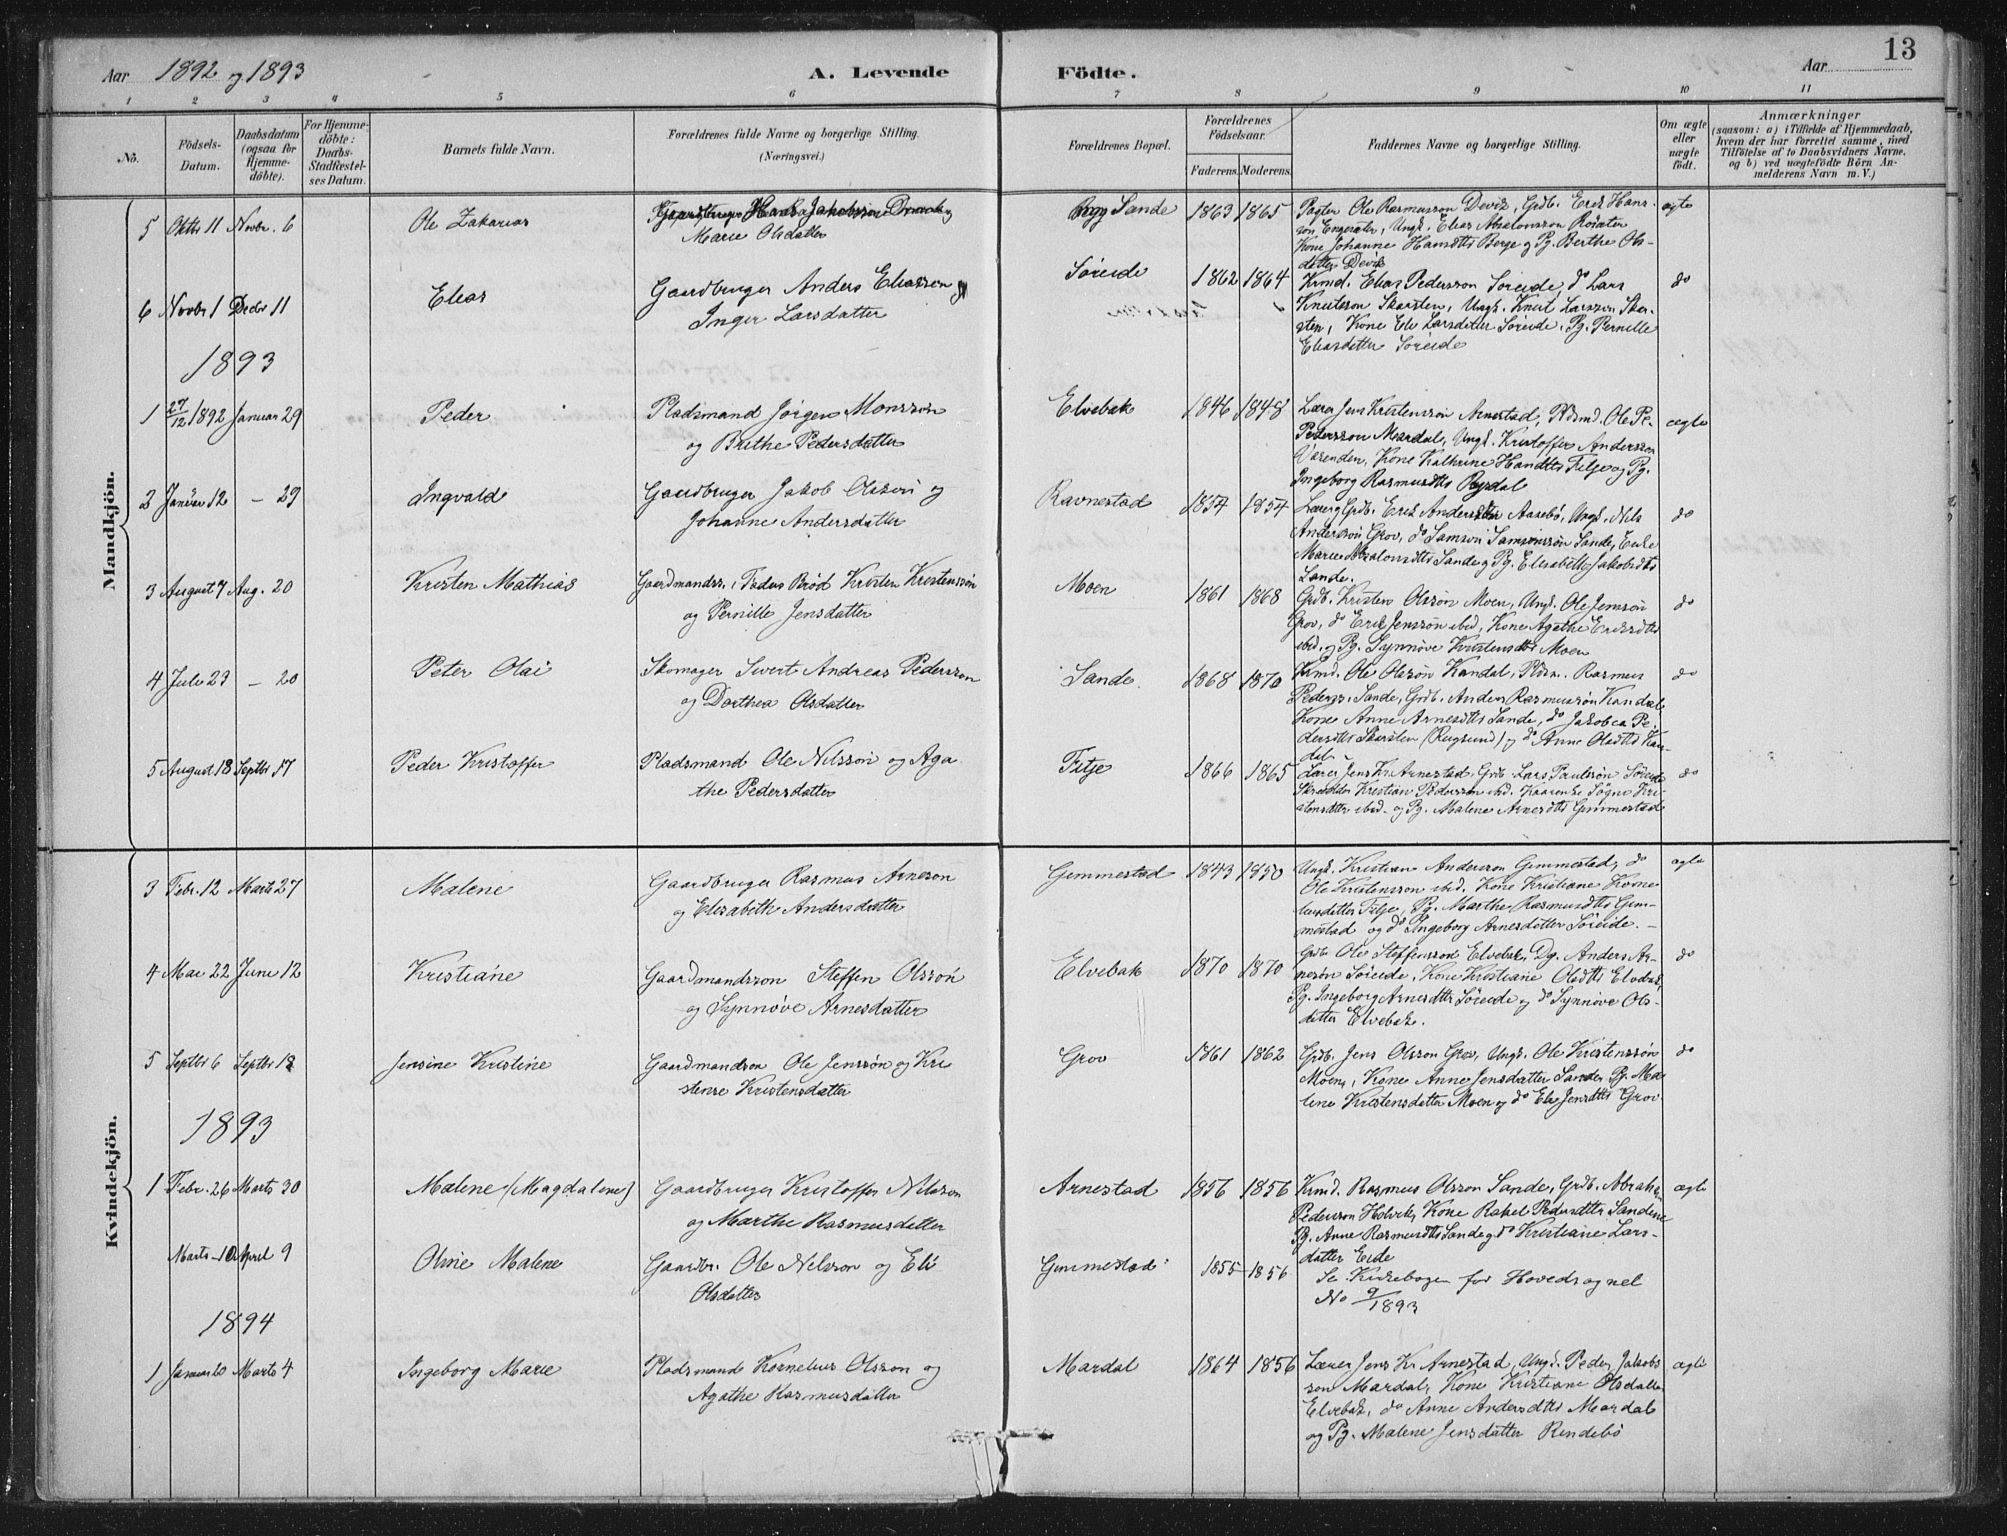 Aar 1892 og 1893 A. Levende Födte. Aar 13
1 2 3 4 5 6 7 8 9 10 11
No. Födsels-Datum. Daabsdatum (ogsaa for Hjemmedöbte). For Hjemmedöbte: Daabs-Stadfæstelses Datum. Barnets fulde Navn. Forældrenes fulde Navne og borgerlige Stilling. (Næringsvei.) Forældrenes Bopæl. Forældrenes Födselsaar. Faderens. Moderens. Faddernes Navne og borgerlige Stilling. Om ægte eller uægte födt. Anmærkninger (saasom: a) i Tilfælde af Hjemmedaab, hvem der har forrettet samme, med Tilföielse af to Daabsvidners Navne. og b) ved uægtefödte Börn Anmelderens Navn m. V.)
Mandkjön.
5 Oktbr 11 Novbr. 6 Ole Zakarias Hans Jakobsson
Marie Olsdatter
Sande 1863 1865 Pagter Ole Rasmusson Devik, Grdb. Erik Hans-
son Engesæter, Ungk. Elias Absalonsson
Kone Johanne Hansdtts Berge og Pg. Berthe Ols-
datter Devik
ægte
6 Novbr 1 Decbr 11 Elias Gaardbruger Anders Eliasson og
Inger Larsdatter
Söreide 1862 1864 Krmd. Elias Pedersson Söreide, do Lars
Knutsson Skarsten, Ungk. Knut Larsson Skar-
sten, Kone Eli Larsdatter Söreide, Pg. Pernille
Eliasdatter Söreide
do
1893
1 27/12 1892 Januar 29 Peder Pladsmand Jörgen Monssön
og Brithe Pedersdatter
Elvebak 1846 1848 Lærer Jens Kristenssön Arnestad, Pldsmd. Ole Pe-
Pedersson Mardal, Ungk. Kristoffer Andersson
Kone Kathrine Hansdtts Fitje og Pg.
Ingeborg Rasmusdtts Rysdal
ægte
2 Januar 12 — 29 Ingvald Gaardbruger Jakob Olssön og
Johanne Andersdatter
Ravnestad 1854 1854 Lærer og Grdb. Erik Anderssön Aasebö, Ungk. Nils
Anderssön Grov, do Samson Samsonssön Sande, Enke
Marie Absalonsdtts Sande og Pg. Elisabeth Jakobsdtts
Sande.
do
3 August 7 Aug. 20 Kristen Mathias Gaardmands. i Faders Bröd Kristen Kristenssön
og Pernille Jensdatter
Moen 1861 1868 Grdb. Kristen Olssön Moen, Ungk. Ole Jenssön
Grov, do Erik Jenssön ibid, Kone Agathe Eriksdtts
ibid. og Pg. Synnöve Kristensdtts Moen
do
4 Juli 23 — 20 Peter Olai Skomager Sivert Andreas Pedersson
og Dorthea Olsdatter
Sande. 1868 1870 Krmd. Ole Olssön Kandal, Pldsm. Rasmus
Pederss. Sande, Grdb. Anders Rasmussön Kandal
Kone Anne Arnesdtts Sande, do Jakobea Pe-
dersdtts Skarsten (Rugsund) og do Anne Olsdtts Kan-
dal.
do
5 August 18 Septbr 17 Peder Kristoffer Pladsmand Ole Nilssön og Aga
the Pedersdatter
Fitje 1866 1865 Lærer Jens Kr. Arnestad, Grdb. Lars Paulssön Söreide
Skrædder Kristian Pedersson ibid.
ibid. og Pg. Malene Arnesdtts Gimmestad
do
Kvindekjön.
3 Febr. 12 Marts 27 Malene Gaardbruger Rasmus Arneson
og Elisabeth Andersdatter
Gimmestad 1843 1850 Ungk. Kristian Andersson Gimmestad, do
Ole Kristensson ibid. Kone Kristiane Korne
liusdatter Fitje, Pg. Marthe Rasmusdtts Gim-
mestad og do Ingeborg Arnesdatter Söreide. –
ægte
4 Mai 22 Juni 12 Kristiane Gaardmandsson Steffen Olssön
og Synnöve Arnesdatter
Elvebak 1870 1870 Grdb. Ole Steffensson Elvebak, Dg. Anders Ar-
nesön Söreide, Kone Kristiane Olsdtts Elvebak,
Pg. Ingeborg Arnesdtter Söreide og do Synnöve Ols-
datter Elvebak.
do
5 Septbr 6 Septbr 18 Jensine Kristine Gaardmandson Ole Jenssön og Kri
stense Kristensdatter
Grov 1861 1862 Grdb. Jens Olsson Grov, Ungk. Ole Kristenssön
Moen, Kone Anne Jensdatter Sande, Pg. Ma
lene Kristensdatter Moen og do Eli Jensdtts Grov
do
1893
1 Febr. 26 Marts 30 Malene (Magdalene) Gaardbruger Kristoffer Nilsson
og Marthe Rasmusdatter
Arnestad 1856 1856 Krmd. Rasmus Olsson Sande, Grdb. Abraham
Pedersson Holvik, Kone Rakel Pedersdtter Sandene
Pg. Anne Rasmusdtts Sande og do Kristiane Lars-
datter Eide
ægte
Marts 10 April 9 Oline Malene Gaardbr. Ole Nilsson og Eli
Olsdatter
Gimmestad 1855 1856 Se Kirkebogen for Hovedsognet
No 9/1893
1894
1 Marts 4 Ingeborg Marie Pladsmand Kornelius Olsson og
Agathe Rasmusdatter
Mardal 1864 1856 Lærer Jens Kr. Arnestad, Ungk. Peder Jakobs
son Mardal, Kone Kristiane Olsdatter
Elvebak, do Anne Andersdtts Mardal
og Pg. Malene Jensdatter Rindebö
ægte